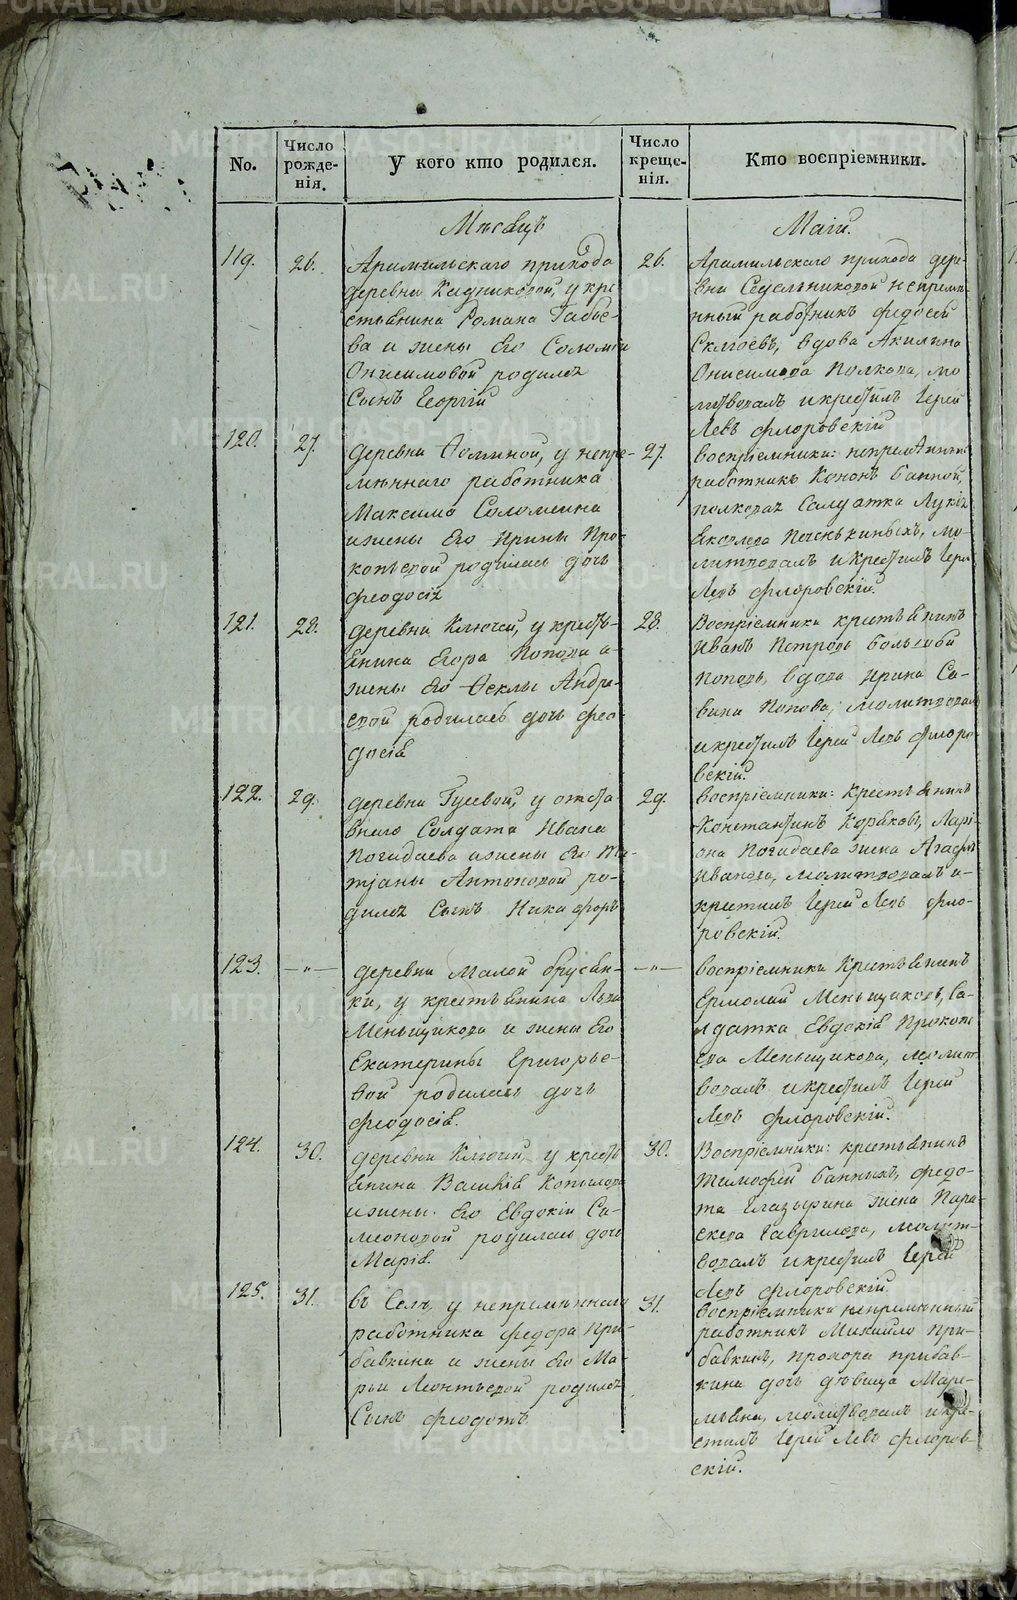 No.
Число рожде-
нія.
У кого кто родился.
Число креще-
нія.
Кто воспріемники.
Мѣсяцъ
Маій.
119.
26.
Арамильскаго прихода
деревни Кадниковой, у кре
стьянина Романа
ва и жены его Соломіи
Онисимовой родился
Сынъ Георгій
26.
Арамильскаго прихода дере-
вни Седельниковой непремѣ-
нный работникъ Федосей
вдова Акилина
Онисимова Полкова, мо
литвовалъ и крестилъ Іерей
Левъ Флоровскій
120.
27.
деревни Ѳоминой, у непре-
мѣннаго работника
Максима Соломеина
и жены его Ирины Про-
копьевой родилась дочь
Феодосія
27.
воспріемники: непремѣнный
работникъ Кононъ Банной,
Салдатка Лукія
мо-
литвовалъ и крестилъ Іерей
Левъ Флоровскій.
121.
28.
деревни Ключей, у кресть-
янина Егора Попова и
жены его Ѳеклы Андре-
евой родилась дочь Фео-
досія
28.
Воспріемники крестьянинъ
Иванъ Петровъ
Поповъ, вдова Ирина Са-
вина Попова, молитвовалъ
и крестилъ Іерей Левъ Флоро-
вскій.
122.
29.
деревни Гусевой, у отста
внаго Солдата Ивана
Погадаева и жены его Та-
тьяны Антоновой ро-
дился Сынъ Никифоръ
29.
воспріемники: Крестьянинъ
Константинъ Коряковъ, Лари-
она Погадаева жена Агафья
Иванова, молитвовалъ и
крестилъ Іерей Левъ Фло-
ровскій.
123.
—"—
деревни Малой Брусян-
ки, у крестьянина Льва
Меньщикова и жены его
Екатерины Григорье-
вой родилась дочь
Феодосія.
—"—
воспріемники Крестьянинъ
Ермолай Меньщиковъ, Са-
лдатка Евдокія Прокопь
ева Меньщикова, молит-
вовалъ и крестилъ Іерей
Левъ Флоровскій.
124.
30.
деревни Ключей, у кресть
янина Василія Копылова
и жены его Евдокіи Са-
моновой родилась дочь
Марія.
30.
Воспріемники: крестьянинъ
Тимофей Банныхъ, Федо-
та Глазырина жена Пара-
скева Гаврилова, молит-
вовалъ и крестилъ Іерей
Левъ Флоровскій.
125.
31.
въ Селѣ, у непремѣннаго
работника Федора При-
бавкина и жены его Ма-
рьи Леонтьевой родился
Сынъ Феодотъ
31.
воспріемники непремѣнный
работникъ Михайло При-
бавкинъ, Прохора Прибав-
кина дочь дѣвица Маре-
мьяна, молитвовалъ и кре-
стилъ Іерей Левъ Флоров
скій.
METRIKI.GASO-URAL.RU